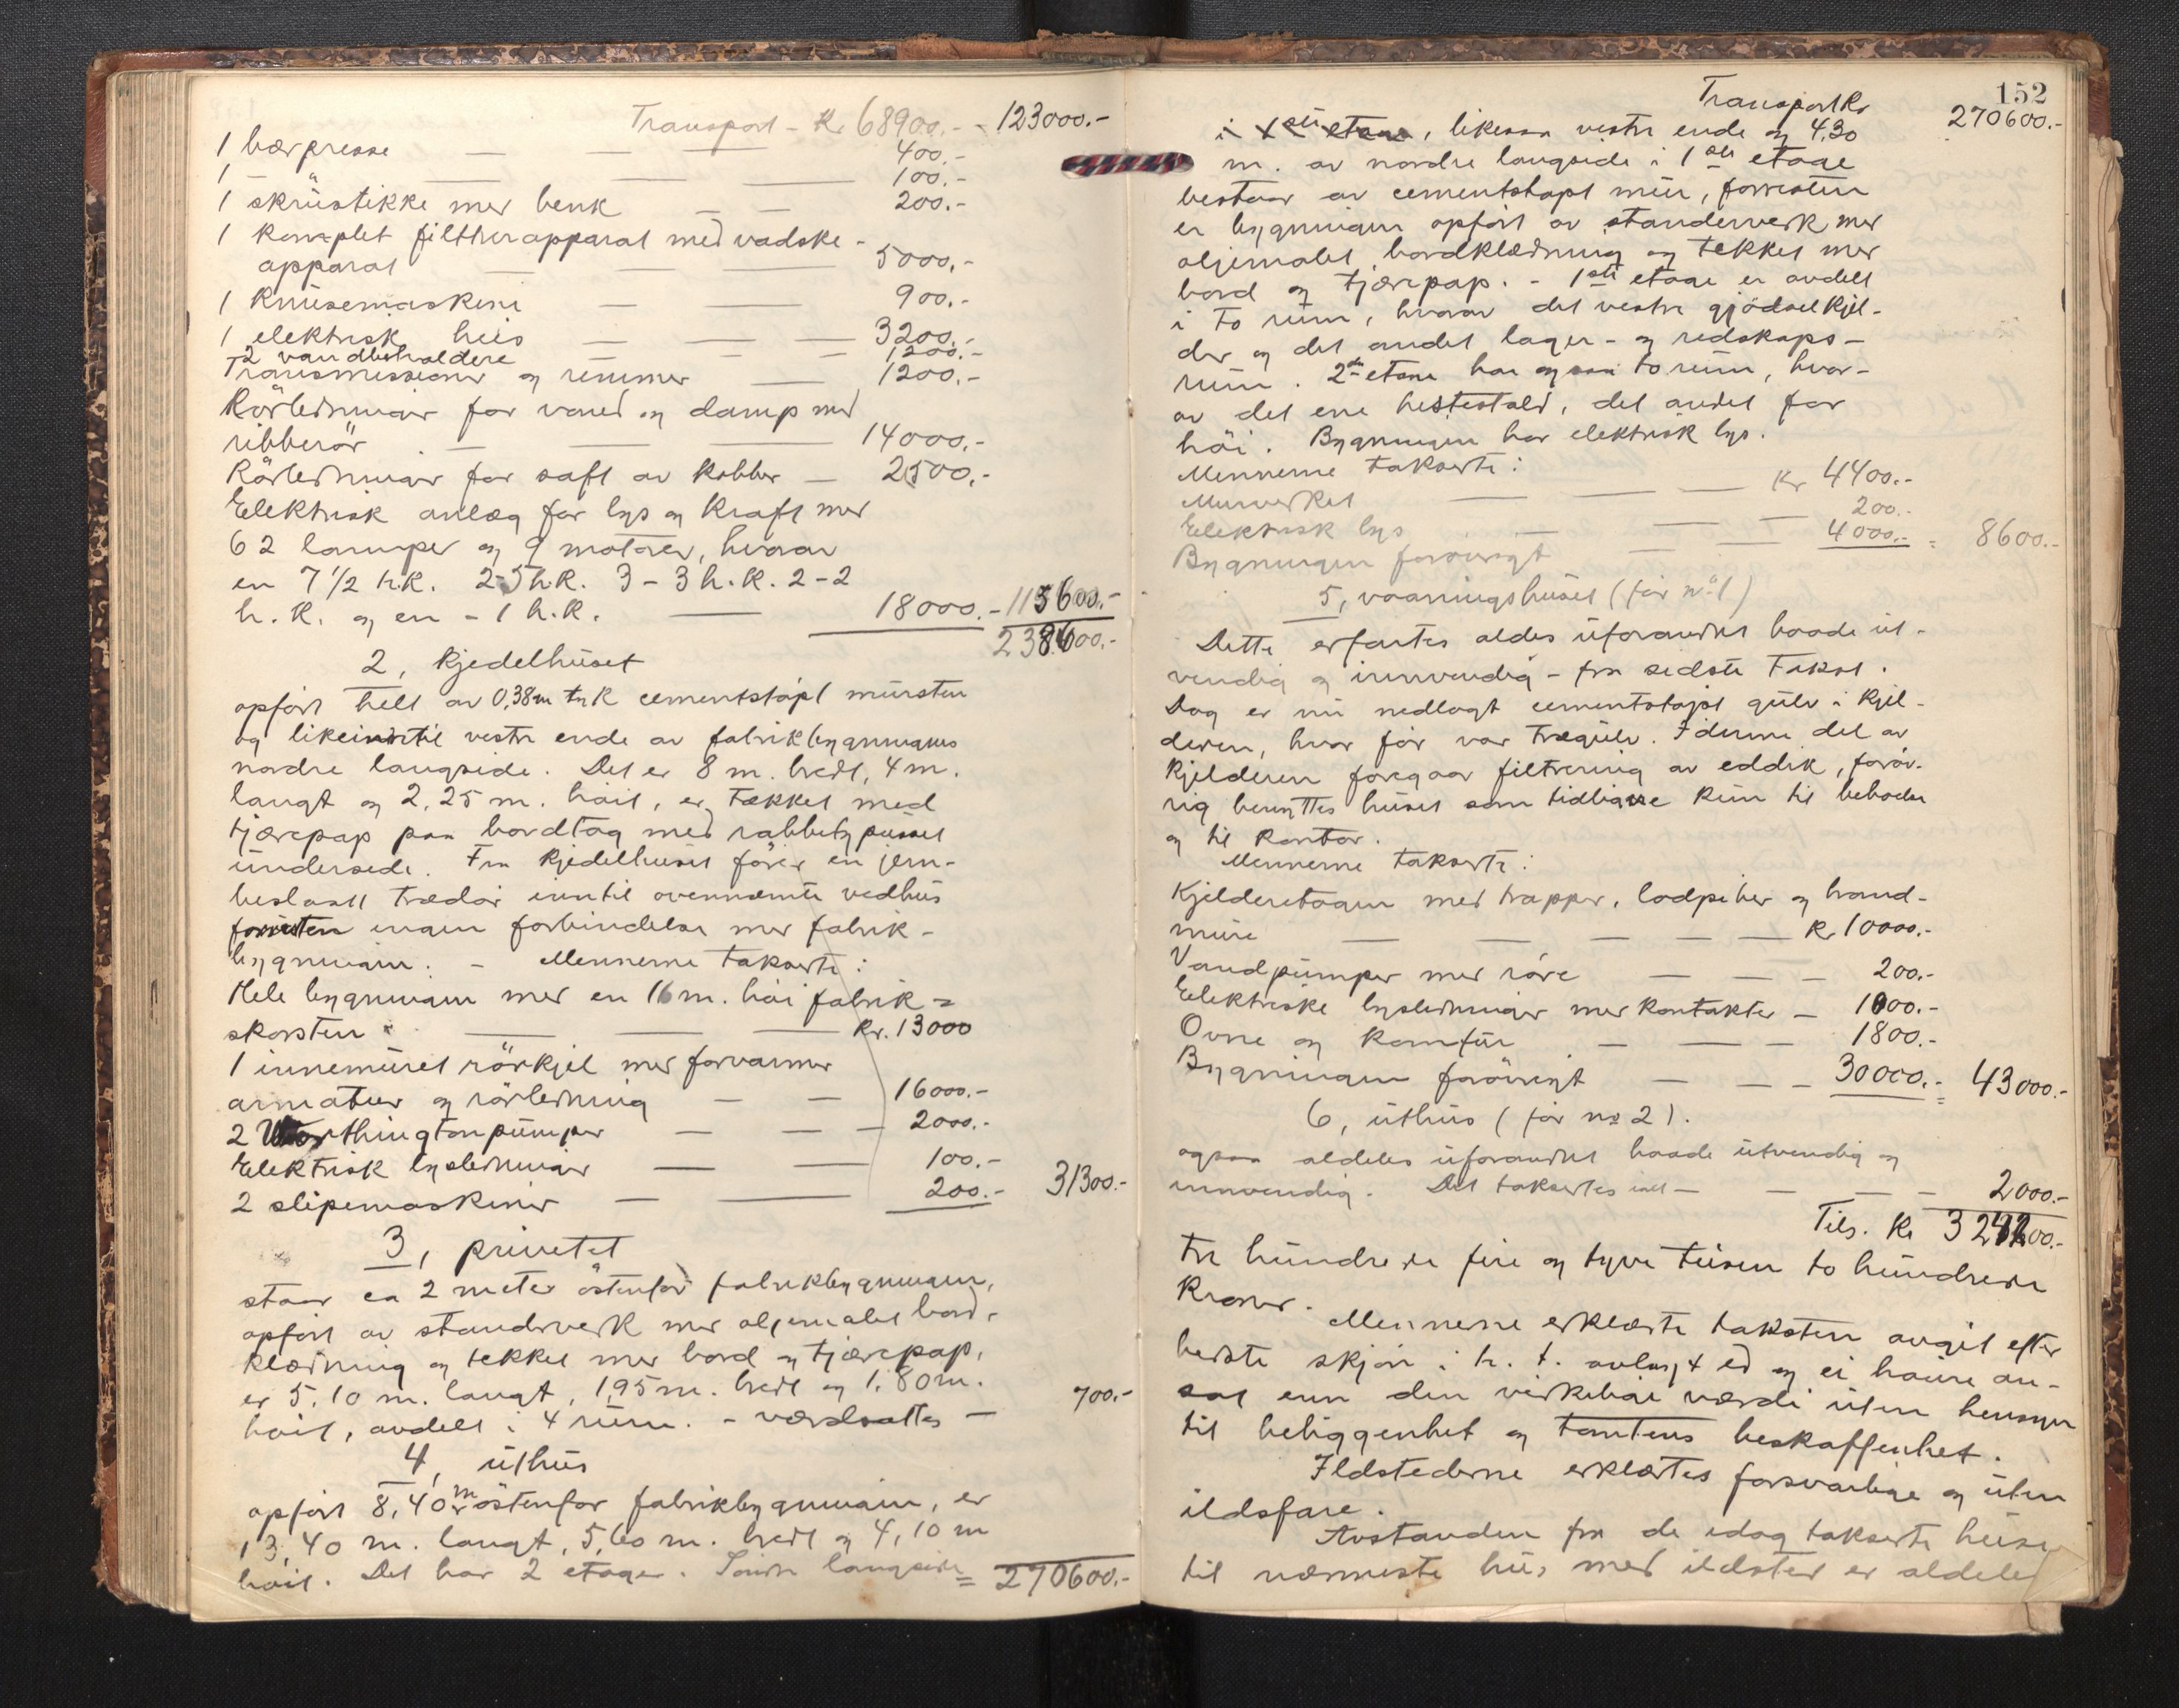 Transport - Kr 68900.- - 123000.-
1 bærpresse — — — 400.-
1 " — — — 100.-
1 skrustikke med benk — — 200.-
1 komplet filtherapparat med vadske-
apparat — — — 5000.-
1 knusemaskine — — 900.-
1 elektrisk heis — — — 3200.-
2 vandbeholdere — — 1200.-
Transmissioner og remmer — 1200.-
Rörledninger for vand og damp med
ribberör — — — 14000.-
Rörledninger for saft av kobber — 2500.-
Elektrisk anlæg for lys og kraft med
62 lamper og 9 motorer, hvorav
en 7 1/2 h.K. 2-5 h.K. 3 - 3 h.K. 2 - 2
h.K. og en - 1 h.K. — 18000.- 115600.-
238600.-
2, Kjedelhuset
opfört helt av 0,38 m tyk cementstöpt mursten
og like inntil vestre ende av fabrikbygningens
nordre langside. Det er 8 m. bredt, 4 m.
langt og 2,25 m. höit, er tækket med
tjærepap paa bordtag med rabbitzpusset
underside. Fra Kjedelhuset förer en jern-
beslaatt trædör inntil ovennævnte vedhus
forresten ingen forbindelse med fabrik-
bygningen. - Mennerne takserte:
Hele bygningen med en 16 m. höi fabrik-
skorsten — — — Kr. 13000
1 innemuret rörkjel med forvarmer
armatur og rörledning — — 16000.-
2 Worthingtonpumper — — — 2000.-
Elektrisk lysledninger — — 100.-
2 slipemaskiner — — 200.- 31300.-
3, privetet
staar ca 2 meter östenfor fabrikbygningen,
opfört av standerverk med oljemalet bord-
klædning og tekket med bord og tjærepap,
er 5.10 m. langt, 1,95 m. bredt og 1.80 m.
höit, avdelt i 4 rum. - værdsattes — 700.-
4, uthus
opfört 8,40 m östenfor fabrikbygningen, er
13,40 m. langt, 5,60 m. bredt og 4,10 m
höit. Det har 2 etager. Söndre langside = 270600.-
152
Transport Kr 270600.-
i 1ste etage, likesaa vestre ende og 4,30
m. av nordre langside i 1ste etage
bestaar av cementstöpt mur, forresten
er bygningen opfört av standerverk med
oljemalet bordklædning og tekket med
bord og tjærepap. - 1ste etage er avdelt
i to rum, hvorav det vestre gjödselkjel-
der og det andet lager- og redskaps-
rum. 2den etage har ogsaa to rum, hvor-
av det ene hestestald, det andet for
höi. Bygningen har elektrisk lys.
Mennerne takserte:
Murverket — — — Kr 4400.-
Elektrisk lys — — — 200.-
Bygningen forövrigt — — 4000.- = 8600.-
5, vaaningshuset (för no 1)
Dette erfartes aldeles uforandret baade ut-
vendig og innvendig - fra sidste takst.
Dog er nu nedlagt cementstöpt gulv i kjel-
deren, hvor för var trægulv. I denne del av
kjelderen foregaar filtrering av eddik, foröv-
rig benyttes huset som tidligere kun til beboelse
og til kontor.
Mennerne takserte:
Kjelderetagen med trapper, lodpiber og brand-
mure — — — — Kr 10000.-
Vandpumper med röre — — — 200.-
Elektriske lysledninger med kontakter — 1000.-
Ovne og komfur — — — 1800.-
Bygningen forövrigt — — — 30000.- = 43000.-
6, uthus (för no 2).
ogsaa aldeles uforandret baade utvendig og
innvendig. Det takseres — — — 2000.-
Tils. Kr 324200.-
tre hundrede fire og tyve tusen to hundrede
Kroner.
Mennerne erklærte taksten avgit efter
bedste skjön i h. t. avlagt ed og ei höiere an-
sat enn den virkelige værdi uten hensyn
til beliggenhet og tomtens beskaffenhet.
Ildstederne erklærtes forsvarlige og uten
ildsfare.
Avstanden fra de idag takserte huse
til nærmeste hus med ildsted er aldeles